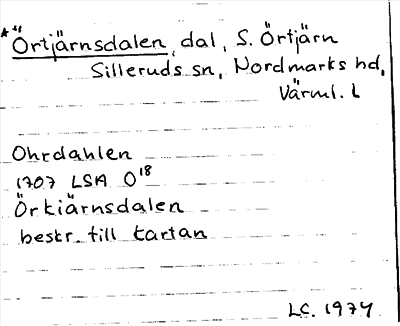 * Örtjärnsdalen, dal, S. Örtjärn
Silleruds sn, Nordmarks hd,
Värml. L
Ohrdahlen
1707 LSA O18
Örkiärnsdalen
beskr. till kartan
LC. 1974